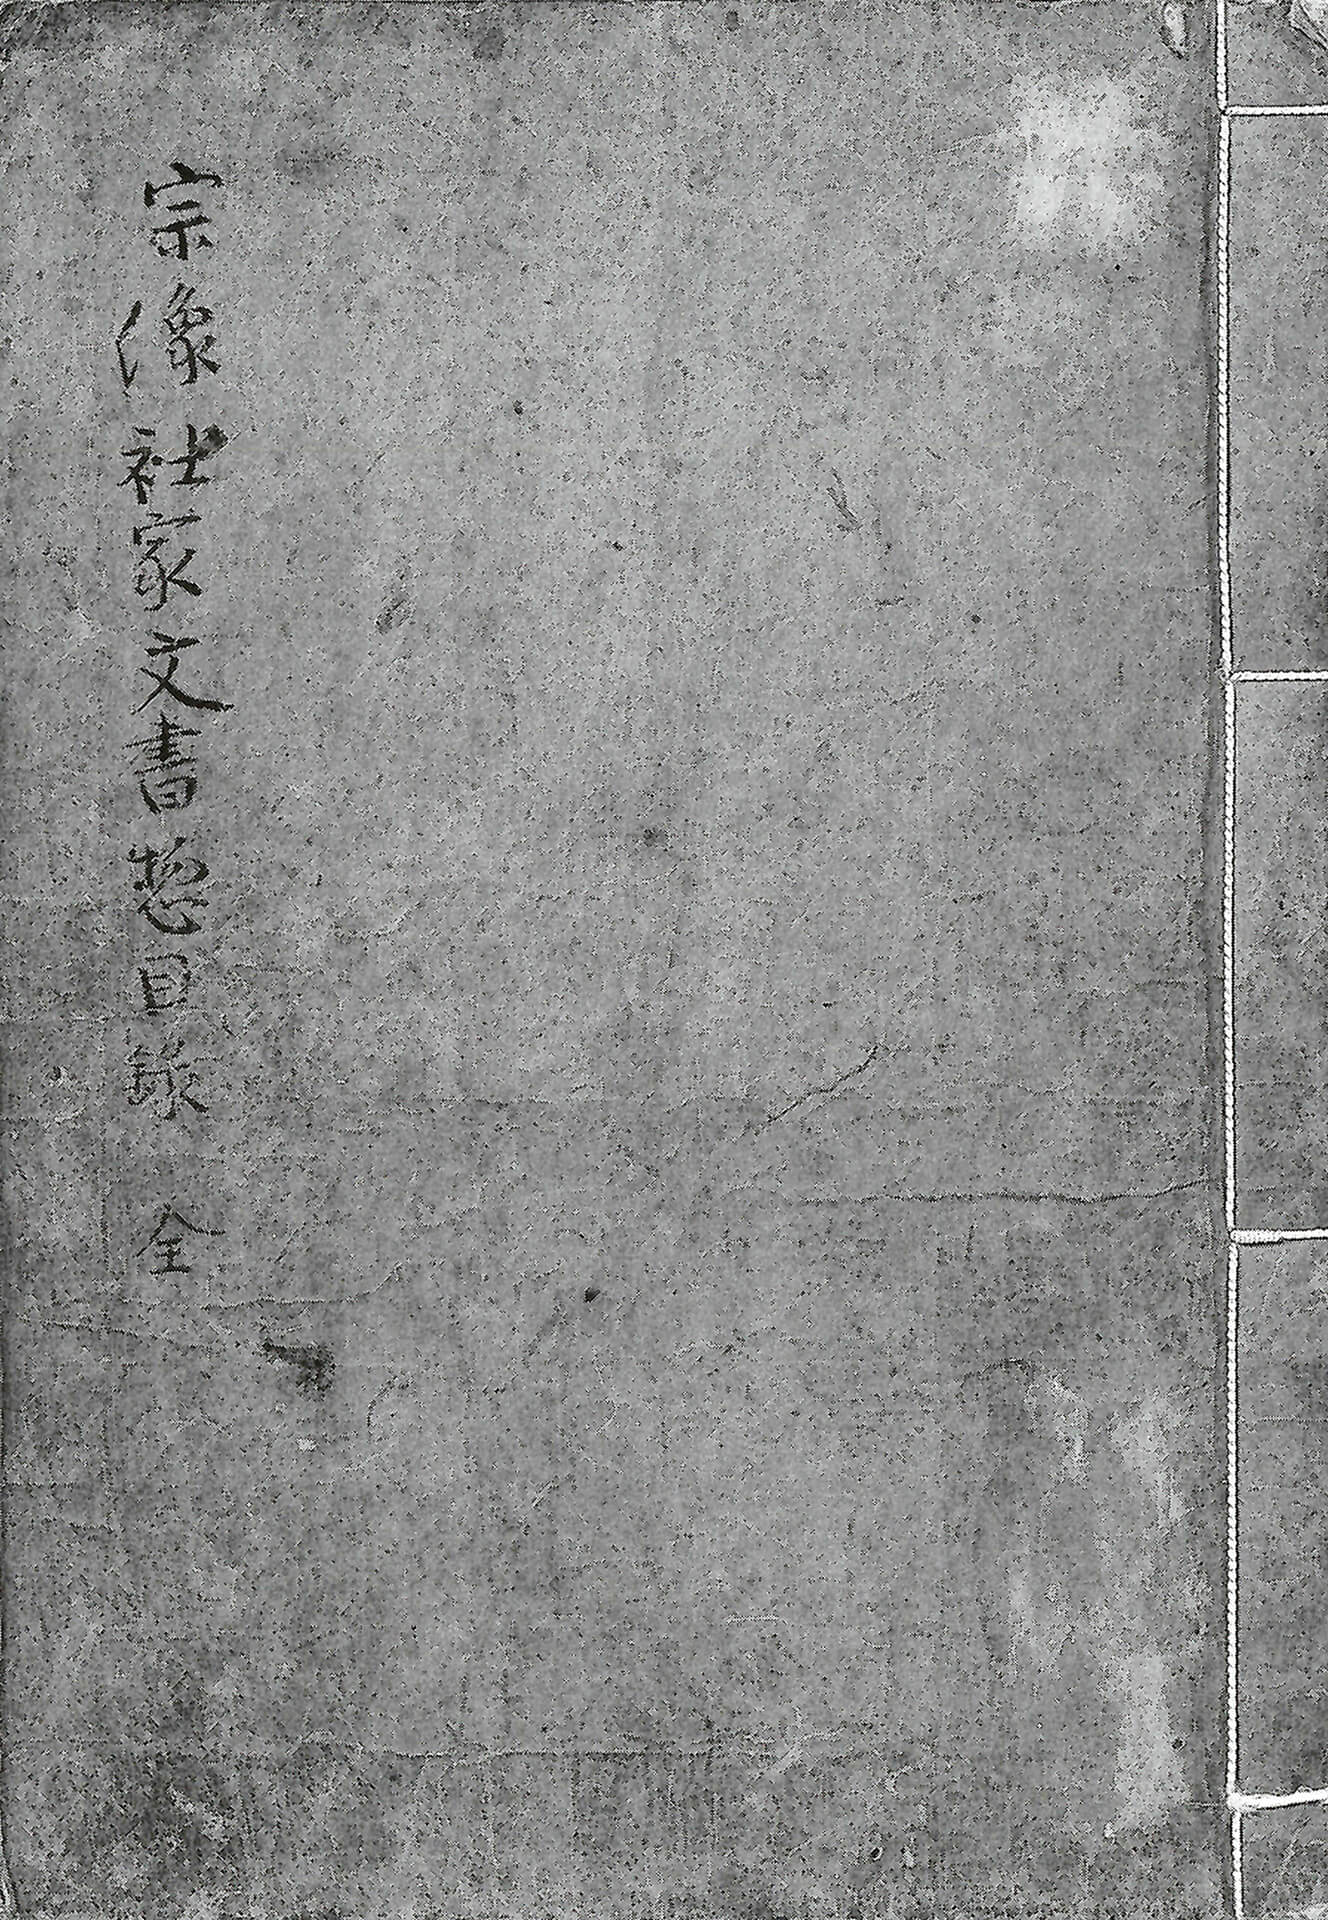 宗像社家文書惣目録　全